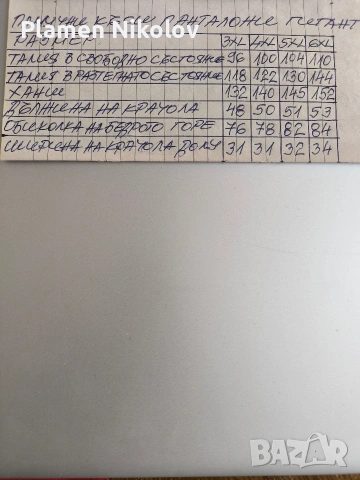 ПАМУЧНИ КЪСИ ПАНТАЛОНИ ГИГАНТ
Plamen Nikolov
РАЗМЕР 3XL 4XL 5XL 6XL
ТАЛИЯ В СВОБОДНО СЪСТОЯНИЕ 96 100 104 110
ТАЛИЯ В РАЗТЕГНАТО СЪСТОЯНИЕ 118 122 130 144
ХАНШ 132 140 145 152
ДЪЛЖИНА НА КРАЧОЛА 48 50 51 53
ОБИКОЛКА НА БЕДРОТО ГОРЕ 76 78 82 84
ШИРИНА НА КРАЧОЛА ДОЛУ 31 31 32 34
BAZAR